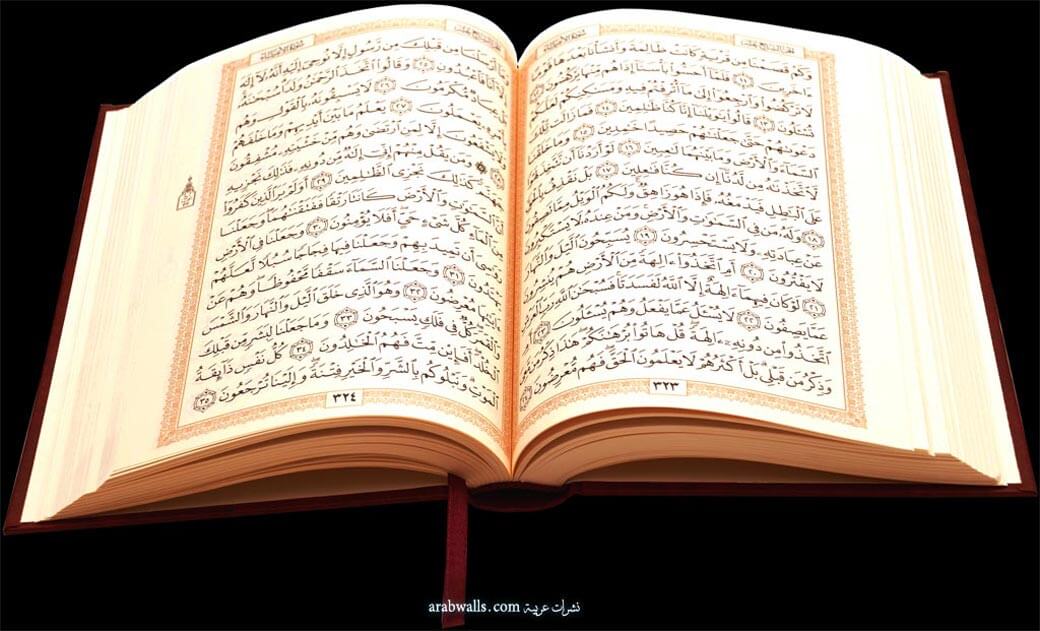 الجزء السابع عشر سورة الأنبياء
وَكَمْ قَصَمْنَا مِن قَرْيَةٍ كَانَتْ ظَالِمَةً وَأَنشَأْنَا بَعْدَهَا قَوْمًا
ءَاخَرِينَ ١١ فَلَمَّآ أَحَسُّواْ بَأْسَنَآ إِذَا هُم مِّنْهَا يَرْكُضُونَ ١٢
لَا تَرْكُضُواْ وَٱرْجِعُوٓاْ إِلَىٰ مَآ أُتْرِفْتُمْ فِيهِ وَمَسَٰكِنِكُمْ لَعَلَّكُمْ
تُسْـَٔلُونَ ١٣ قَالُواْ يَٰوَيْلَنَآ إِنَّا كُنَّا ظَٰلِمِينَ ١٤ فَمَا زَالَت تِّلْكَ
دَعْوَىٰهُمْ حَتَّىٰ جَعَلْنَٰهُمْ حَصِيدًا خَٰمِدِينَ ١٥ وَمَا خَلَقْنَا
ٱلسَّمَآءَ وَٱلْأَرْضَ وَمَا بَيْنَهُمَا لَٰعِبِينَ ١٦ لَوْ أَرَدْنَآ أَن نَّتَّخِذَ
لَّٱتَّخَذْنَٰهُ مِن لَّدُنَّآ إِن كُنَّا فَٰعِلِينَ ١٧ بَلْ نَقْذِفُ بِٱلْحَقِّ
عَلَى ٱلْبَٰطِلِ فَيَدْمَغُهُۥ فَإِذَا هُوَ زَاهِقٌ وَلَكُمُ ٱلْوَيْلُ مِمَّا تَصِفُونَ
١٨ وَلَهُۥ مَن فِي ٱلسَّمَٰوَٰتِ وَٱلْأَرْضِ وَمَنْ عِندَهُۥ لَا يَسْتَكْبِرُونَ
عَنْ عِبَادَتِهِۦ وَلَا يَسْتَحْسِرُونَ ١٩ يُسَبِّحُونَ ٱلَّيْلَ وَٱلنَّهَارَ
لَا يَفْتُرُونَ ٢٠ أَمِ ٱتَّخَذُوٓاْ ءَالِهَةً مِّنَ ٱلْأَرْضِ هُمْ يُنشِرُونَ
٢١ لَوْ كَانَ فِيهِمَآ ءَالِهَةٌ إِلَّا ٱللَّهُ لَفَسَدَتَا فَسُبْحَٰنَ ٱللَّهِ رَبِّ ٱلْعَرْشِ
عَمَّا يَصِفُونَ ٢٢ لَا يُسْـَٔلُ عَمَّا يَفْعَلُ وَهُمْ يُسْـَٔلُونَ ٢٣
ٱتَّخَذُواْ مِن دُونِهِۦٓ ءَالِهَةً قُلْ هَاتُواْ بُرْهَٰنَكُمْ هَٰذَا ذِكْرُ مَن
وَذِكْرُ مَن قَبْلِي بَلْ أَكْثَرُهُمْ لَا يَعْلَمُونَ ٱلْحَقَّ فَهُم مُّعْرِضُونَ ٢٤
٣٢٣
الجزء السابع عشر سورة الأنبياء
أَرْسَلْنَا مِن قَبْلِكَ مِن رَّسُولٍ إِلَّا نُوحِيٓ إِلَيْهِ أَنَّهُۥ لَآ إِلَٰهَ
إِلَّآ أَنَا۠ فَٱعْبُدُونِ ٢٥ وَقَالُواْ ٱتَّخَذَ ٱلرَّحْمَٰنُ وَلَدًا سُبْحَٰنَهُۥ
بَلْ عِبَادٌ مُّكْرَمُونَ ٢٦ لَا يَسْبِقُونَهُۥ بِٱلْقَوْلِ وَهُم
بِأَمْرِهِۦ يَعْمَلُونَ ٢٧ يَعْلَمُ مَا بَيْنَ أَيْدِيهِمْ وَمَا خَلْفَهُمْ
وَلَا يَشْفَعُونَ إِلَّا لِمَنِ ٱرْتَضَىٰ وَهُم مِّنْ خَشْيَتِهِۦ مُشْفِقُونَ
٢٨ وَمَن يَقُلْ مِنْهُمْ إِنِّيٓ إِلَٰهٌ مِّن دُونِهِۦ فَذَٰلِكَ نَجْزِيهِ
جَهَنَّمَ كَذَٰلِكَ نَجْزِي ٱلظَّٰلِمِينَ ٢٩ أَوَلَمْ يَرَ ٱلَّذِينَ كَفَرُوٓاْ
أَنَّ ٱلسَّمَٰوَٰتِ وَٱلْأَرْضَ كَانَتَا رَتْقًا فَفَتَقْنَٰهُمَا وَجَعَلْنَا
مِنَ ٱلْمَآءِ كُلَّ شَيْءٍ حَيٍّ أَفَلَا يُؤْمِنُونَ ٣٠ وَجَعَلْنَا فِي ٱلْأَرْضِ
رَوَٰسِيَ أَن تَمِيدَ بِهِمْ وَجَعَلْنَا فِيهَا فِجَاجًا سُبُلًا لَّعَلَّهُمْ
يَهْتَدُونَ ٣١ وَجَعَلْنَا ٱلسَّمَآءَ سَقْفًا مَّحْفُوظًا وَهُمْ عَنْ
ءَايَٰتِهَا مُعْرِضُونَ ٣٢ وَهُوَ ٱلَّذِي خَلَقَ ٱلَّيْلَ وَٱلنَّهَارَ وَٱلشَّمْسَ
وَٱلْقَمَرَ كُلٌّ فِي فَلَكٍ يَسْبَحُونَ ٣٣ وَمَا جَعَلْنَا لِبَشَرٍ مِّن قَبْلِكَ
ٱلْخُلْدَ أَفَإِيْن مِّتَّ فَهُمُ ٱلْخَٰلِدُونَ ٣٤ كُلُّ نَفْسٍ ذَآئِقَةُ
ٱلْمَوْتِ وَنَبْلُوكُم بِٱلشَّرِّ وَٱلْخَيْرِ فِتْنَةً وَإِلَيْنَا تُرْجَعُونَ ٣٥
٣٢٤
arabwalls.com نشرات عربية